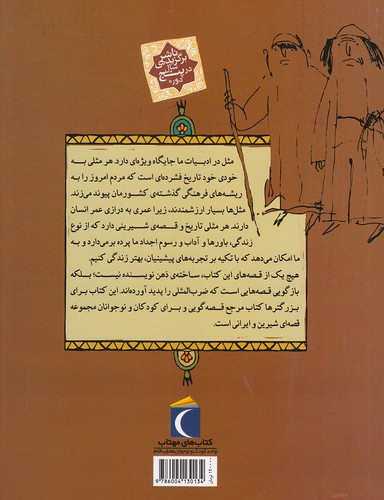 ناشر
برگزیده‌ی
سال
در پنج
دوره
مثل در ادبیات ما جایگاه ویژه‌ای دارد. هر مثلی به
خودی خود تاریخ فشرده‌ای است که مردم امروز را به
ریشه‌های فرهنگی گذشته‌ی کشورمان پیوند می‌زند.
مثل‌ها بسیار ارزشمندند، زیرا عمری به درازی عمر انسان
دارند. هر مثلی تاریخ و قصه‌ی شیرینی دارد که از نوع
زندگی، باورها و آداب و رسوم اجداد ما پرده برمی‌دارد و به
ما امکان می‌دهد که با تکیه بر تجربه‌های پیشینیان، بهتر زندگی کنیم.
هیچ یک از قصه‌های این کتاب، ساخته‌ی ذهن نویسنده نیست؛ بلکه
بازگویی قصه‌هایی است که ضرب‌المثلی را پدید آورده‌اند. این کتاب برای
بزرگترها کتاب مرجع قصه‌گویی و برای کودکان و نوجوانان مجموعه
قصه‌ای شیرین و ایرانی است.
کتاب‌های مهتاب
واحد کودک و نوجوان محراب قلم
9 786004 130134